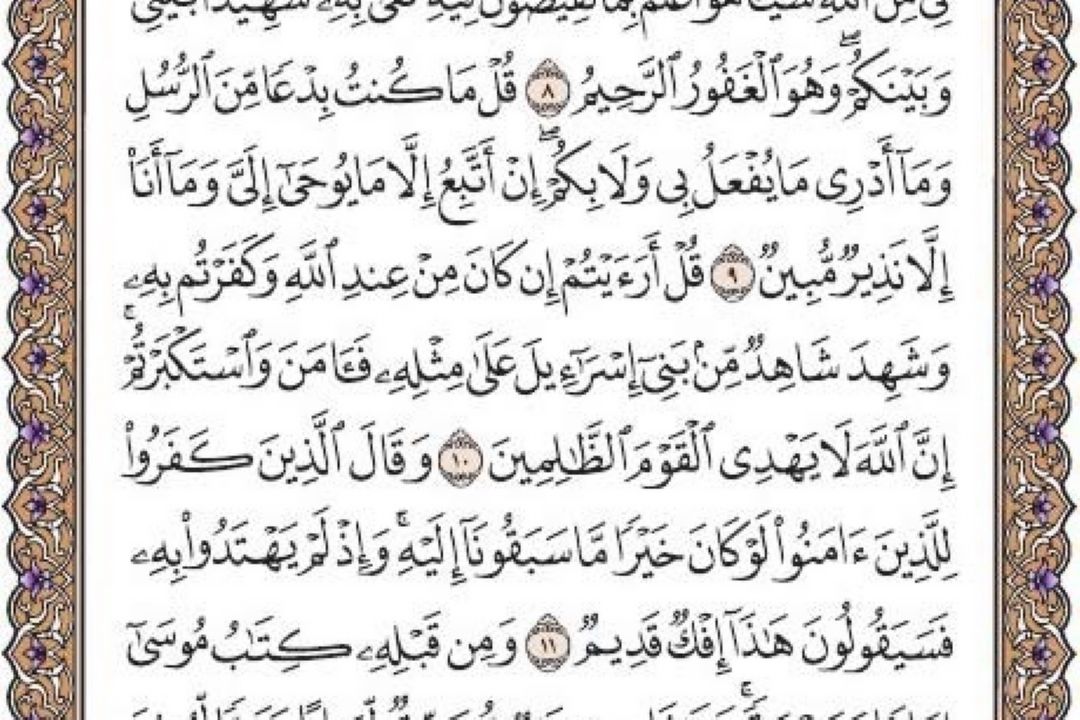 وَبَيْنَكُمْ ۖ وَهُوَ ٱلْغَفُورُ ٱلرَّحِيمُ ٨ قُلْ مَا كُنتُ بِدْعًا مِّنَ ٱلرُّسُلِ
وَمَآ أَدْرِى مَا يُفْعَلُ بِى وَلَا بِكُمْ ۖ إِنْ أَتَّبِعُ إِلَّا مَا يُوحَىٰٓ إِلَىَّ وَمَآ أَنَا۠
إِلَّا نَذِيرٌ مُّبِينٌ ٩ قُلْ أَرَءَيْتُمْ إِن كَانَ مِنْ عِندِ ٱللَّهِ وَكَفَرْتُم بِهِۦ
وَشَهِدَ شَاهِدٌ مِّنۢ بَنِىٓ إِسْرَٰٓءِيلَ عَلَىٰ مِثْلِهِۦ فَـَٔامَنَ وَٱسْتَكْبَرْتُمْ ۚ
إِنَّ ٱللَّهَ لَا يَهْدِى ٱلْقَوْمَ ٱلظَّـٰلِمِينَ ١٠ وَقَالَ ٱلَّذِينَ كَفَرُوا۟
لِلَّذِينَ ءَامَنُوا۟ لَوْ كَانَ خَيْرًا مَّا سَبَقُونَآ إِلَيْهِ ۚ وَإِذْ لَمْ يَهْتَدُوا۟ بِهِۦ
فَسَيَقُولُونَ هَـٰذَآ إِفْكٌ قَدِيمٌ ١١ وَمِن قَبْلِهِۦ كِتَـٰبُ مُوسَىٰٓ